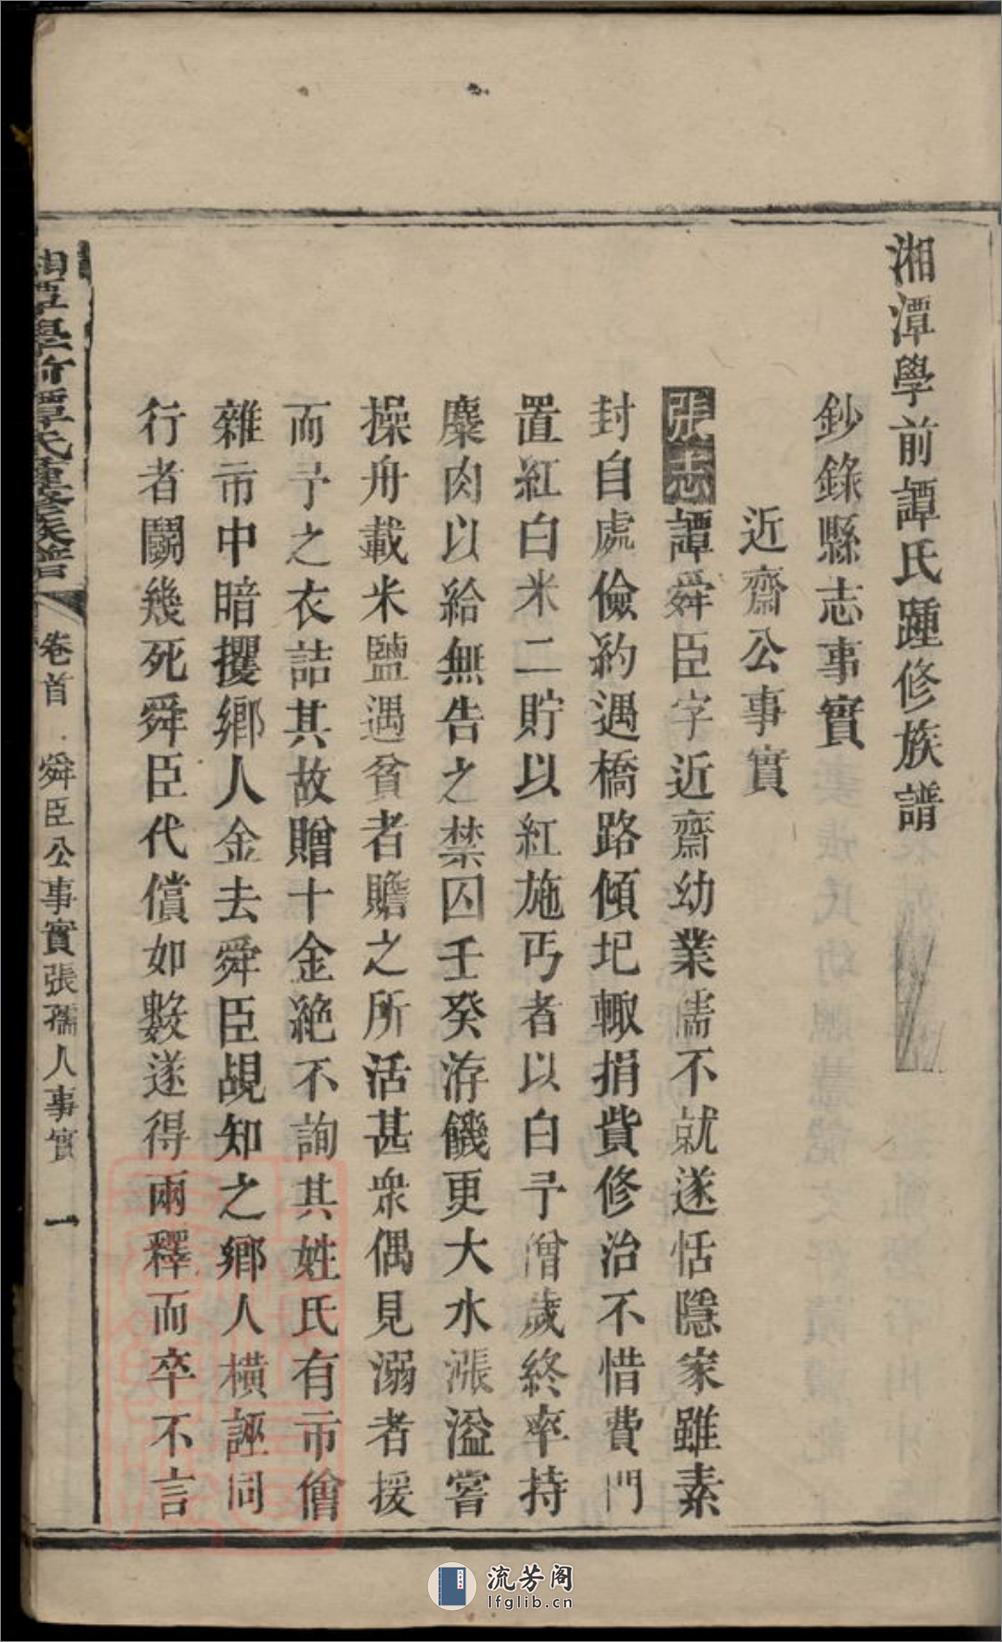 湘潭學前譚氏踵修族譜
鈔錄縣志事實
近齋公事實
張志譚舜臣字近齋幼業儒不就遂恬隱家雖素
封自處儉約遇橋路傾圯輙捐費修治不惜費門
置紅白米二貯以紅施丐者以白予僧歲終率持
糜肉以給無告之禁囚壬癸洊饑更大水漲溢嘗
操舟載米鹽遇貧者贍之所活甚衆偶見溺者援
而予之衣詰其故贈十金絶不詢其姓氏有市儈
雜市中暗攫鄉人金去舜臣覘知之鄉人橫誣同
行者鬬幾死舜臣代償如數遂得兩釋而卒不言
湘潭學前譚氏踵修族譜
卷首 舜臣公事實張孺人事實 一
流芳阁
lfglib.cn